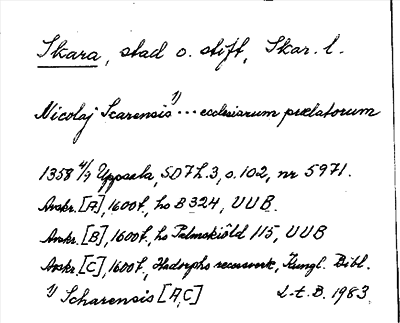 Skara, stad o. stift, Skar. l.
Nicolaj Scarensis 1) ... ecclesiarum prelatorum
1358 4/7 Uppsala, SD 7 h. 3, s. 102, nr 5971.
Avskr. [A], 1600t, hs B 324, UUB.
Avskr. [B], 1600t, hs Palmskiöld 115, UUB
Avskr. [C], 1600t, Hadorphs resverk, Kungl. Bibl.
1) Scharensis [A, C] L-t. B. 1983